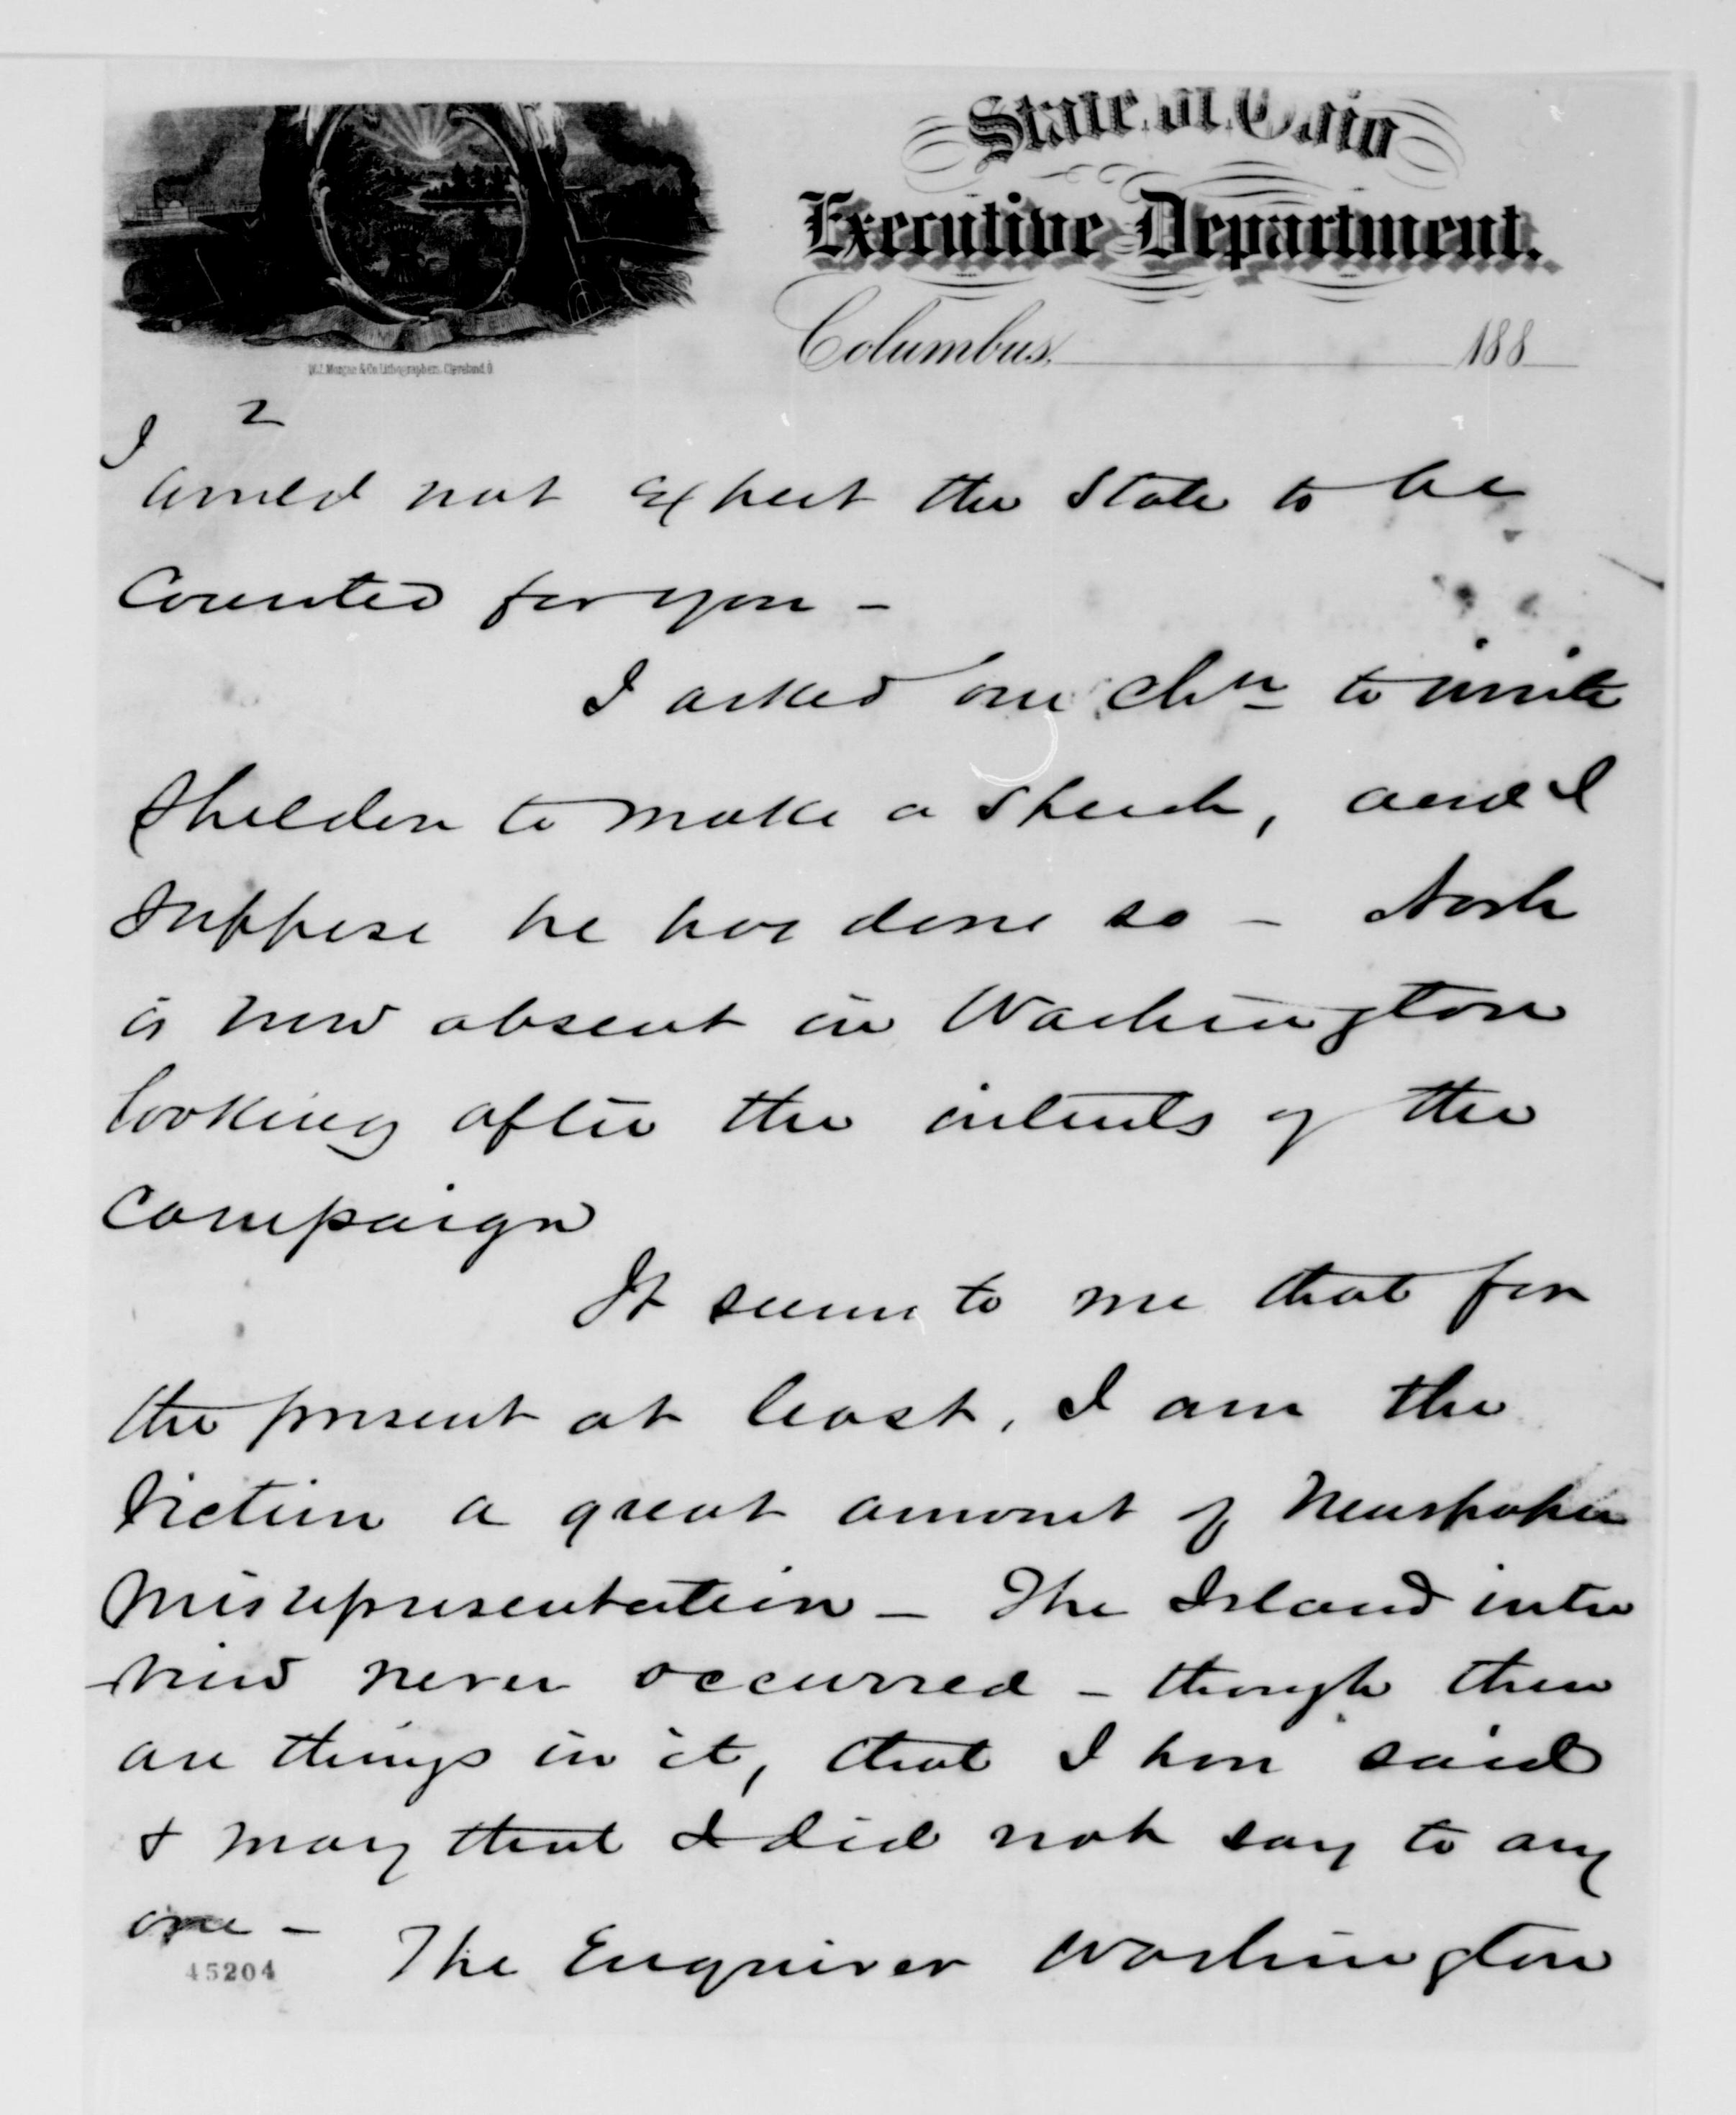 State of Ohio
Executive Department.
Columbus, 188
W.J. Morgan & Co. Lithographers. Cleveland, O.
2
I
would not expect the State to be
Counted for you –
I asked our Chn to invite
Sheldon to make a Speech, and I
Suppose he has done so – Nash
is now absent in Washington
looking after the interests of the
Campaign
It seems to me that for
the present at least, I am the
Victim a great amount of Newspaper
Misrepresentation – The Island inter
view never occurred – though there
are things in it, that I have said
& many that I did not say to any
one –
The Enquirer Washington
45204